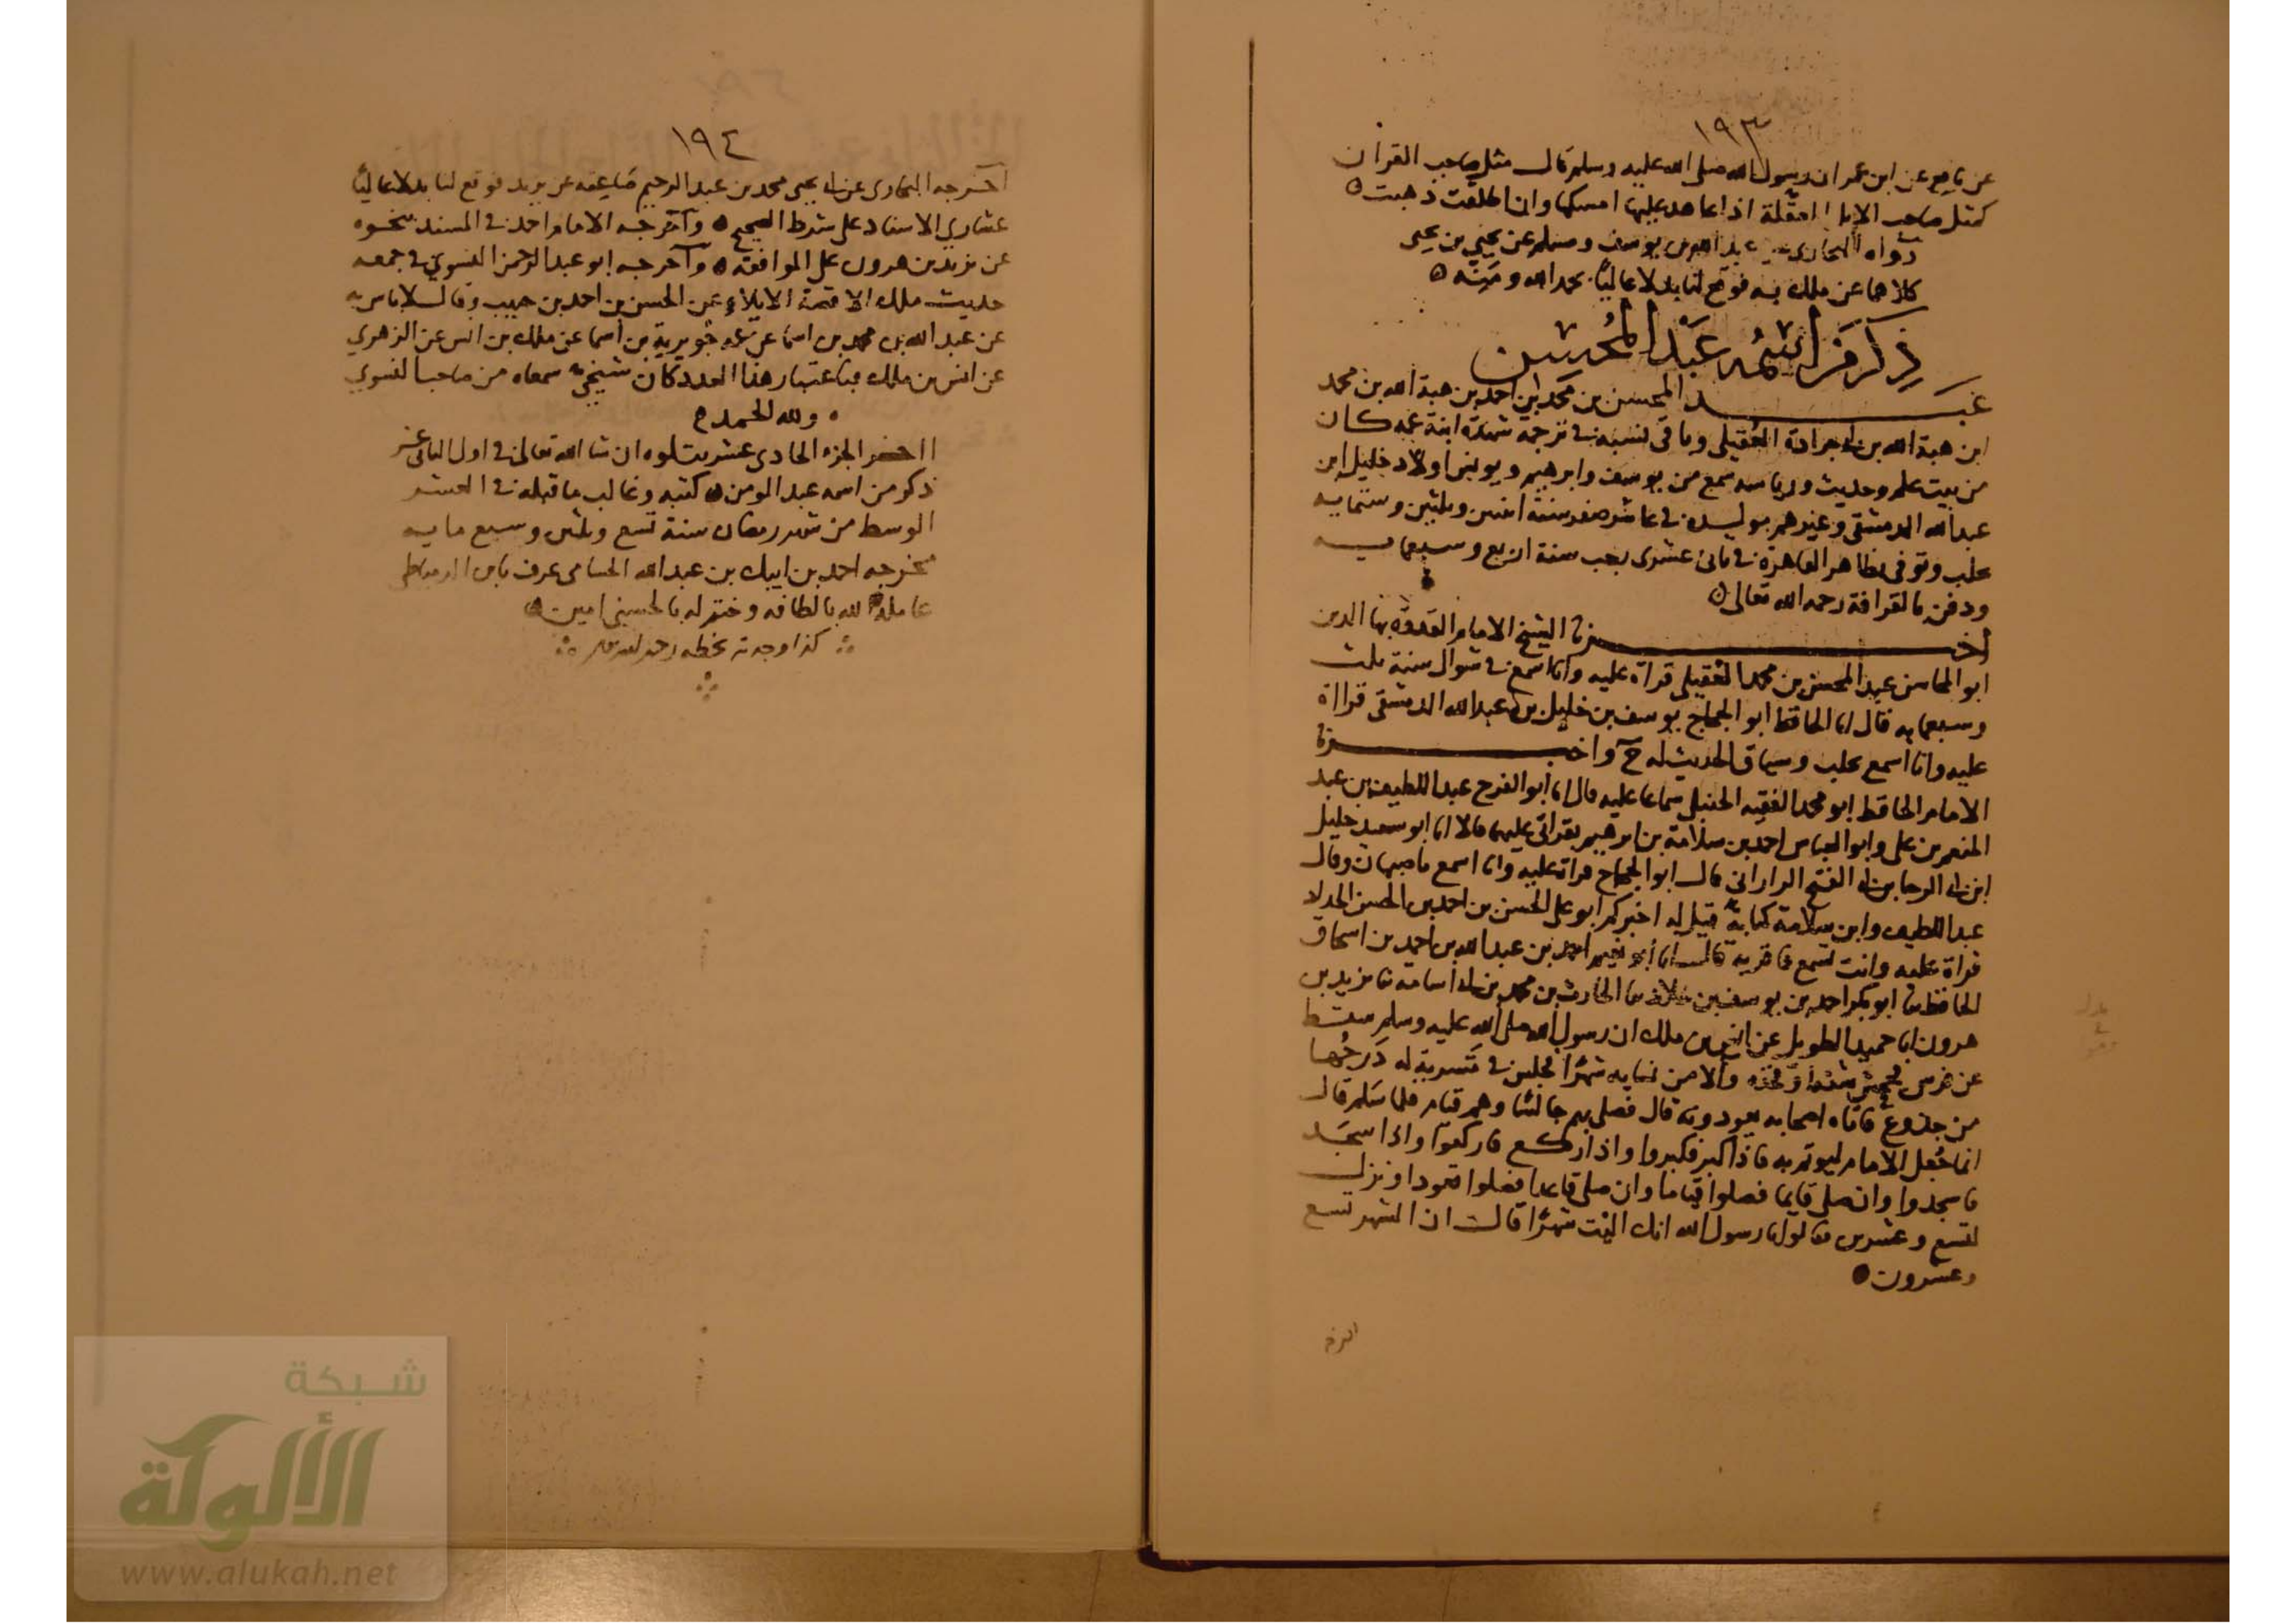 ١٩٣
عن نافع عن ابن عمر ان رسول الله صلى الله عليه وسلم قال مثل صاحب القران
كمثل صاحب الابل المعقلة اذا عاهد عليها امسكها وان اطلقت ذهبت
رواه البخاري عن عبد الله بن يوسف ومسلم عن يحيى بن يحيى
كلاهما عن ملك به فوقع لنا بدلا عاليا بحمد الله ومنه
ذكر من اسمه عبد المحسن
عبد المحسن بن محمد بن احمد بن هبة الله بن محمد
ابن هبة الله بن ابي جرادة العقيلي وباقي نسبه في ترجمة شهدة ابنة عمه كان
من بيت علم وحديث ورياسه سمع من يوسف وابرهيم ويونس اولاد خليل ابن
عبد الله الدمشقي وغيرهم مولده في عاشر صفر سنة اثنين وثلثين وستمايه
بحلب وتوفي بظاهر القاهرة في ثاني عشرى رجب سنة اربع وسبعمايه
ودفن بالقرافة رحمه الله تعالى
اخبرنا الشيخ الامام القدوة بها الدين
ابو المحاسن عبد المحسن بن محمد العقيلي قراة عليه وانا اسمع في شوال سنة ثلث
وسبعمايه قال انا الحافظ ابو الحجاج يوسف بن خليل بن عبد الله الدمشقي قراة
عليه وانا اسمع بحلب وسياق الحديث له ح واخبرنا
الامام الحافظ ابو محمد الفقيه الحنبلي سماعا عليه قال انا ابو الفرج عبد اللطيف بن عبد
المنعم بن علي وابو العباس احمد بن سلامة بن ابرهيم بقراتي عليهما قالا انا ابو سعيد خليل
ابن ابي الرجا بن ابي الفتح الراراني قال ابو الحجاج قراة عليه وانا اسمع باصبهان وقال
عبد اللطيف وابن سلامة كتابة قيل له اخبركم ابو علي الحسن بن احمد بن الحسن الحداد
قراة عليه وانت تسمع فاقر به قال انا ابو نعيم احمد بن عبد الله بن احمد بن اسحاق
الحافظ ثنا ابو بكر احمد بن يوسف بن خلاد ثنا الحارث بن محمد بن ابي اسامة ثنا يزيد بن
هرون انا حميد الطويل عن انس بن ملك ان رسول الله صلى الله عليه وسلم سقط
عن فرس فجحش شقه او فخذه والا من نسايه شهرا فجلس في مشربة له درجها
من جذوع فاتاه اصحابه يعودونه قال فصلى بهم جالسا وهم قيام فلما سلم قال
انما جعل الامام ليوتم به فاذا كبر فكبروا واذا ركع فاركعوا واذا سجد
فاسجدوا وان صلى قايما فصلوا قياما وان صلى قاعدا فصلوا قعودا ونزل
لتسع وعشرين فقالوا يا رسول الله انك اليت شهرا قال ان الشهر تسع
وعشرون
١٩٤
اخرجه البخاري عن ابي يحيى محمد بن عبد الرحيم صاعقه عن يزيد فوقع لنا بدلا عاليا
عشاري الاسناد على شرط الصحيح واخرجه الامام احمد في المسند بنحوه
عن يزيد بن هرون على الموافقة واخرجه ابو عبد الرحمن النسوي في جمعه
حديث ملك الا قصة الايلاء عن الحسن بن احمد بن حبيب وقال لا باس به
عن عبد الله بن محمد بن اسما عن عمه جويرية بن اسما عن ملك بن انس عن الزهري
عن انس بن ملك فباعتبار هذا العدد كان شيخي سمعاه من صاحب النسوي
ولله الحمد
اخر الجزء الحادي عشر يتلوه ان شا الله تعالى في اول الثاني عشر
ذكر من اسمه عبد المومن كتبه وغالب ما قبله في العشر
الوسط من شهر رمضان سنة تسع وثلثين وسبع مايه
مخرجه احمد بن ايبك بن عبد الله الحسامي عرف بابن الدمياطي
عامله الله بالطافه وختم له بالحسنى امين
كذا وجدته بخطه رحمه الله
شبكة
الألوكة
www.alukah.net